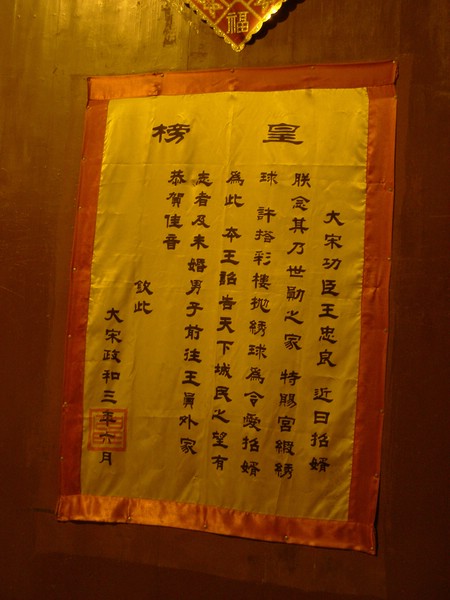 福
皇榜
大宋功臣王忠良 近日招婿
朕念其乃世勛之家 特賜宮緞綉
球 許搭彩樓拋綉球爲令愛招婿
爲此 本王詔告天下城民之望有
志者及未婚男子前往王員外家
恭賀佳音
欽此
大宋政和三年六月